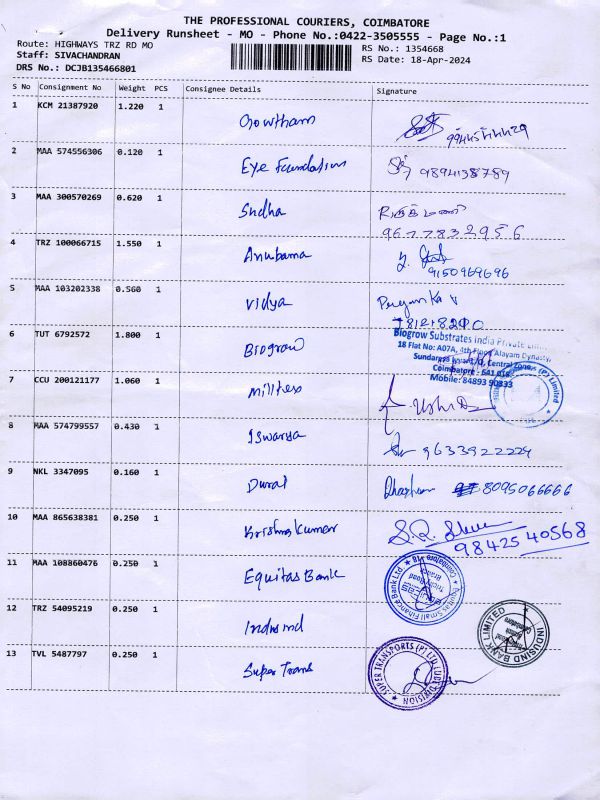 THE PROFESSIONAL COURIERS, COIMBATORE
Delivery Runsheet - MO - Phone No.:0422-3505555 - Page No.:1
Route: HIGHWAYS TRZ RD MO
Staff: SIVACHANDRAN
DRS No.: DCJB135466801
RS No.: 1354668
RS Date: 18-Apr-2024
S No Consignment No Weight PCS Consignee Details Signature
1 KCM 21387920 1.220 1 Gowtham
2 MAA 574556306 0.120 1 Eye Foundation 9894138789
3 MAA 300570269 0.620 1 Sudha 9677832956
4 TRZ 100066715 1.550 1 Anubama 9150969696
5 MAA 103202338 0.560 1 Vidya
6 TUT 6792572 1.800 1 Biogrow
Biogrow Substrates India Private
18 Flat No: A07A, 4th Floor, Alayam Dynasty,
Central Zone,
Coimbatore - 641
Mobile: 84893 90833
7 CCU 200121177 1.060 1 Milltex Usha
8 MAA 574799557 0.430 1 Iswarya 9633922224
9 NKL 3347095 0.160 1 Durai 8095066666
10 MAA 865638381 0.250 1 Krishna Kumar 98425 40568
11 MAA 108860476 0.250 1 Equitas Bank
Equitas Small Finance Bank Ltd.
12 TRZ 54095219 0.250 1 Indusind
INDUSIND BANK LIMITED
13 TVL 5487797 0.250 1 Super Trans
SUPER TRANSPORTS (P) LTD LUBE DIVISION